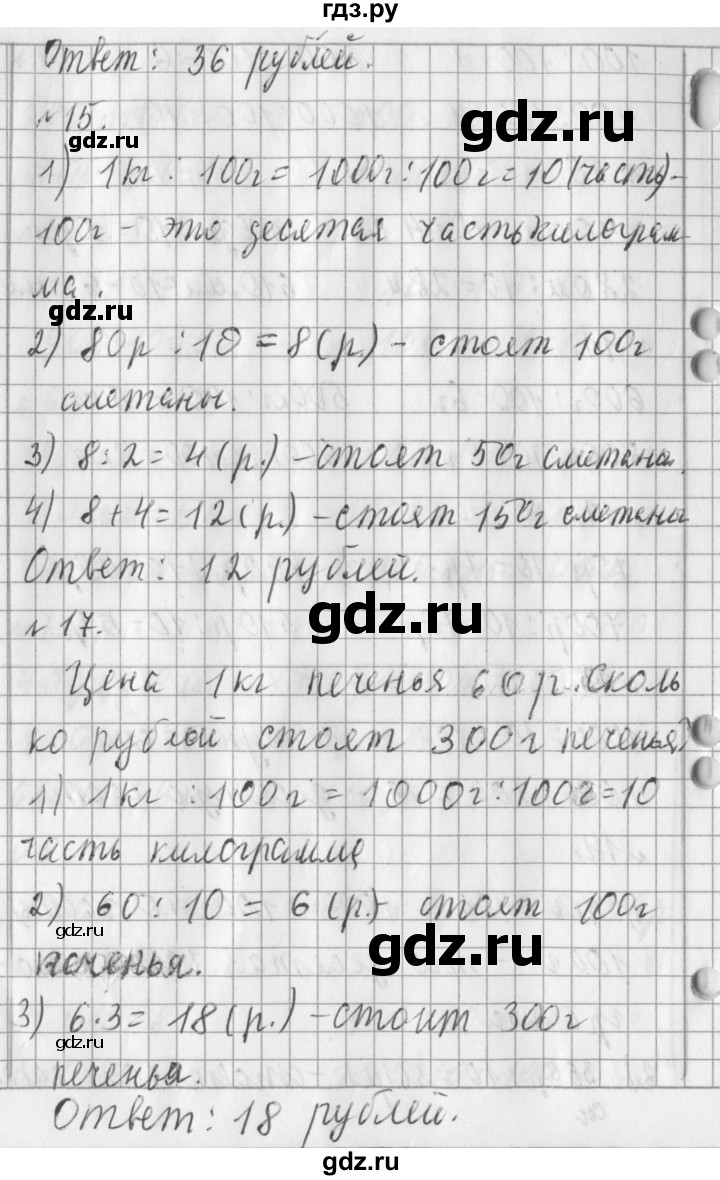 гдз.ру
Ответ: 36 рублей.
№15.
gdz.ru
gdz.ru
1) 1кг : 100г = 1000г : 100г = 10 (часть) -
100г - это десятая часть килограм-
ма.
gdz.ru
2) 80р : 10 = 8 (р.) - стоят 100г
сметаны.
3) 8 : 2 = 4 (р.) - стоят 50г сметана.
4) 8 + 4 = 12 (р.) - стоят 150г сметаны
Ответ: 12 рублей.
gdz.ru
№17.
Цена 1кг печенья 60р. Сколь
ко рублей стоят 300г печенья?
1) 1кг : 100г = 1000г : 100г = 10
часть килограмма
2) 60 : 10 = 6 (р.) - стоят 100г
gdz.ru
gdz.ru
печенья.
3) 6 · 3 = 18 (р.) - стоит 300г
gdz.ru
печенья.
Ответ: 18 рублей.
gdz.ru